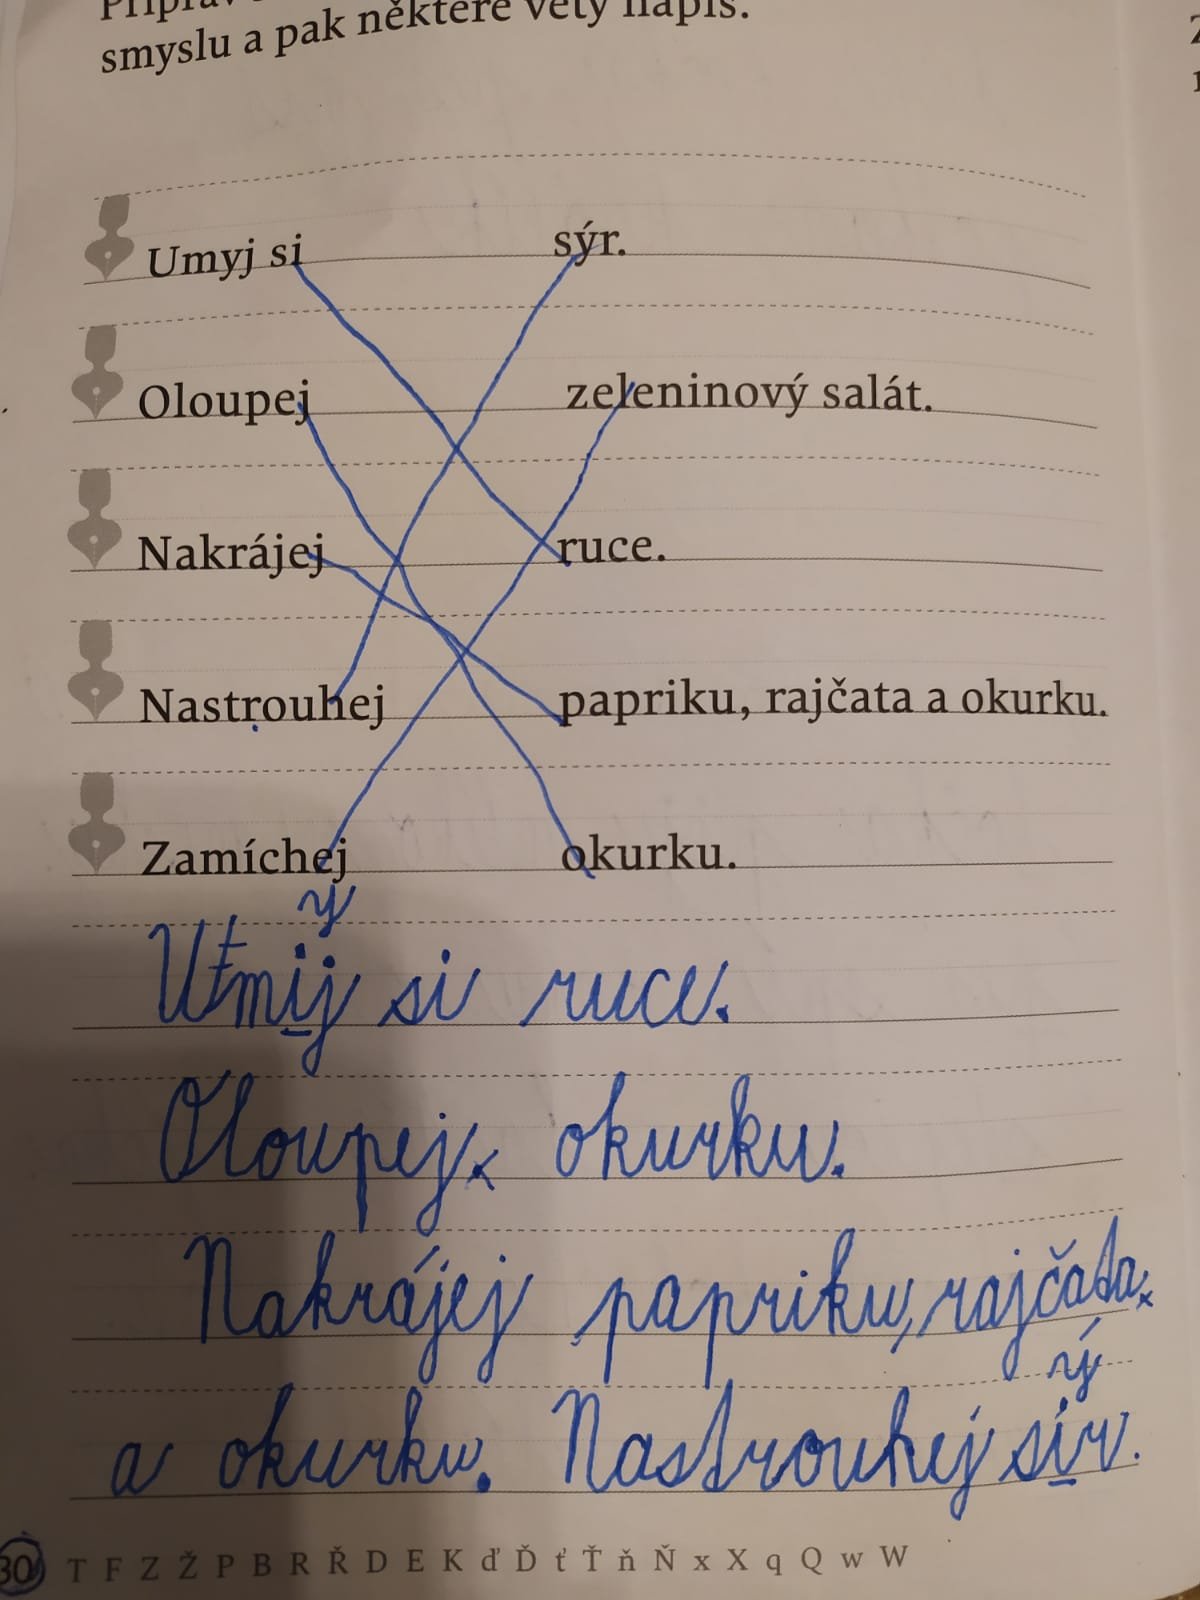 smyslu a pak některé věty napiš.
Umyj si sýr.
Oloupej zeleninový salát.
Nakrájej ruce.
Nastrouhej papriku, rajčata a okurku.
Zamíchej okurku.
y
Umij si ruce.
Oloupej okurku.
Nakrájej papriku, rajčata
ý
a okurku. Nastrouhej sír.
30 T F Z Ž P B R Ř D E K ď Ď ť Ť ň Ň x X q Q w W